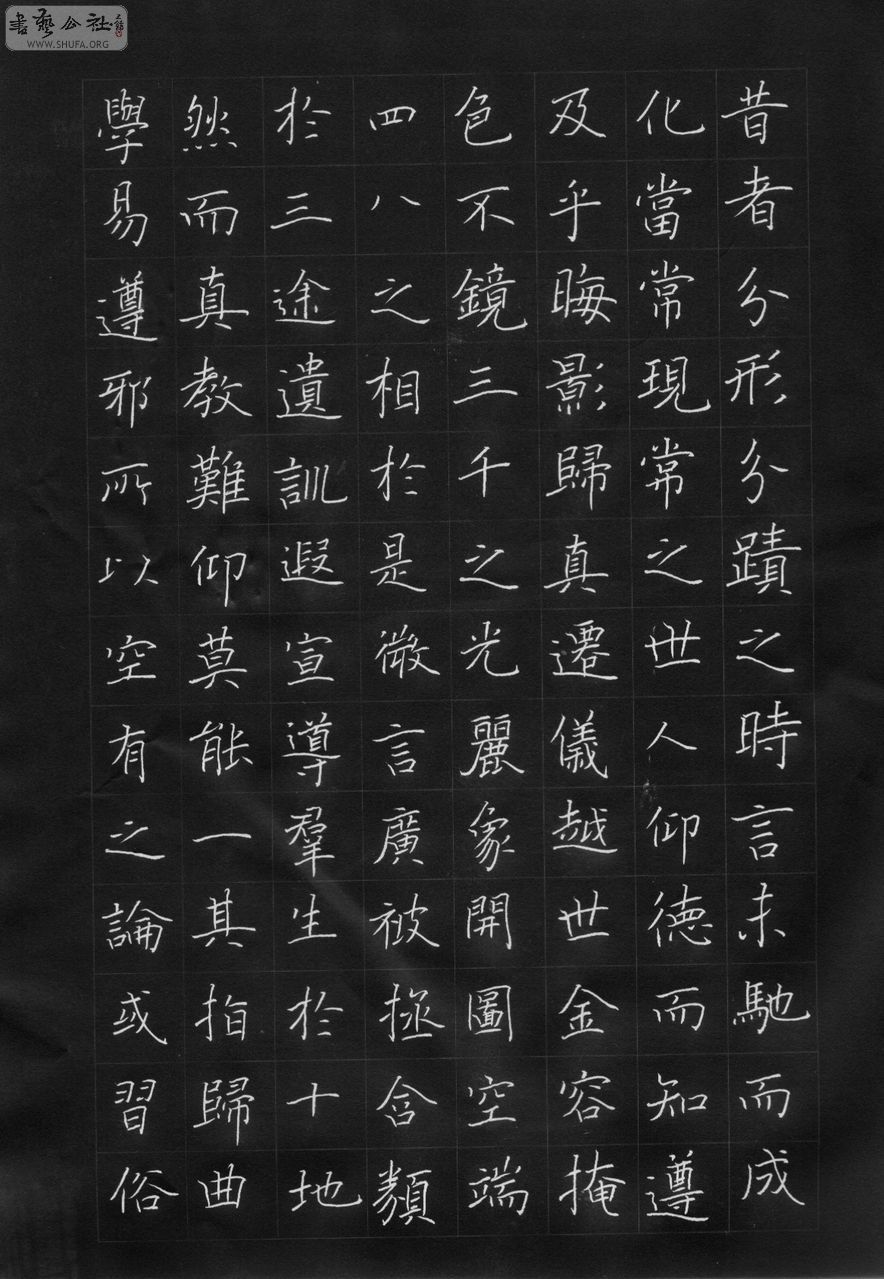 書藝公社
WWW.SHUFA.ORG
昔者分形分蹟之時言未馳而成
化當常現常之世人仰德而知遵
及乎晦影歸真遷儀越世金容掩
色不鏡三千之光麗象開圖空端
四八之相於是微言廣被拯含類
於三途遺訓遐宣導羣生於十地
然而真教難仰莫能一其指歸曲
學易遵邪所以空有之論或習俗